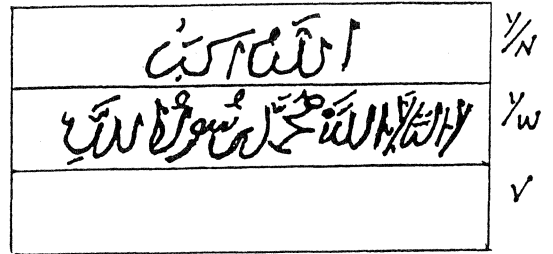 الله اكبر Y/N
لا اله الا الله محمد رسول الله Y/W